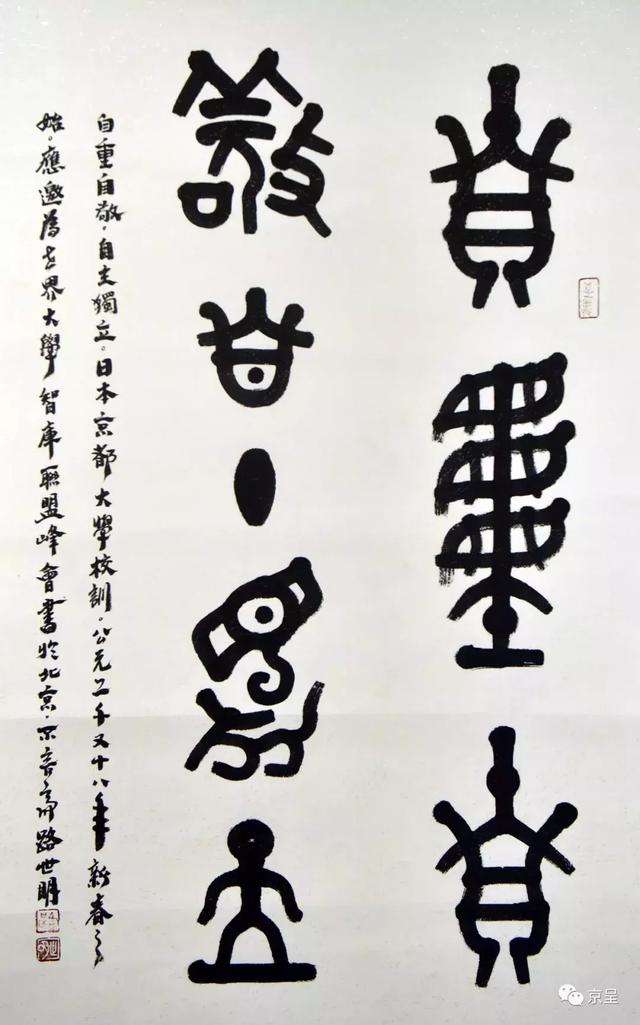 自重自
敬自主獨立
自重自敬。自主獨立。日本京都大學校訓。公元二千又十八年新春之
始。應邀為世界大學智庫聯盟峰會書於北京。齋路世明
京呈